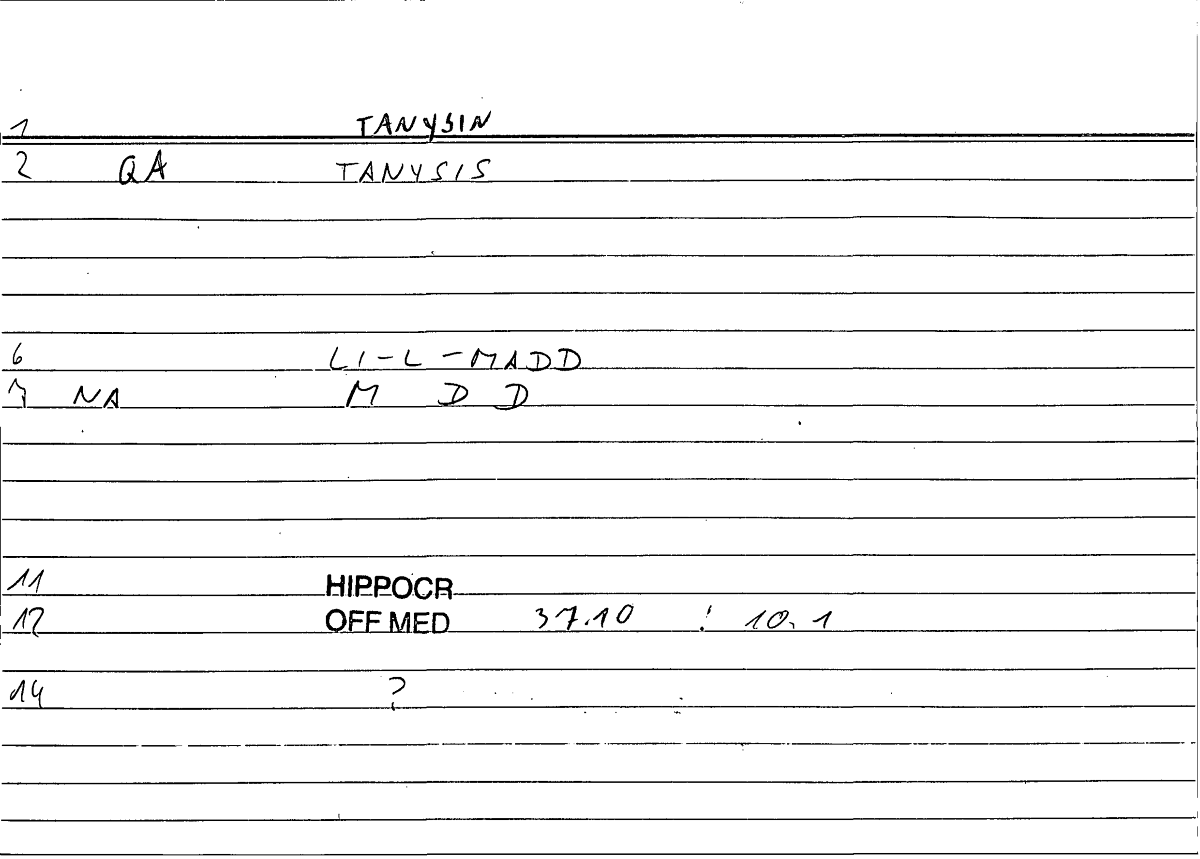 1 TANYSIN
2 QA TANYSIS
6 LI-L-MADD
7 NA M D D
11 HIPPOCR
12 OFF MED 37.10 ! 10. 1
14 ?